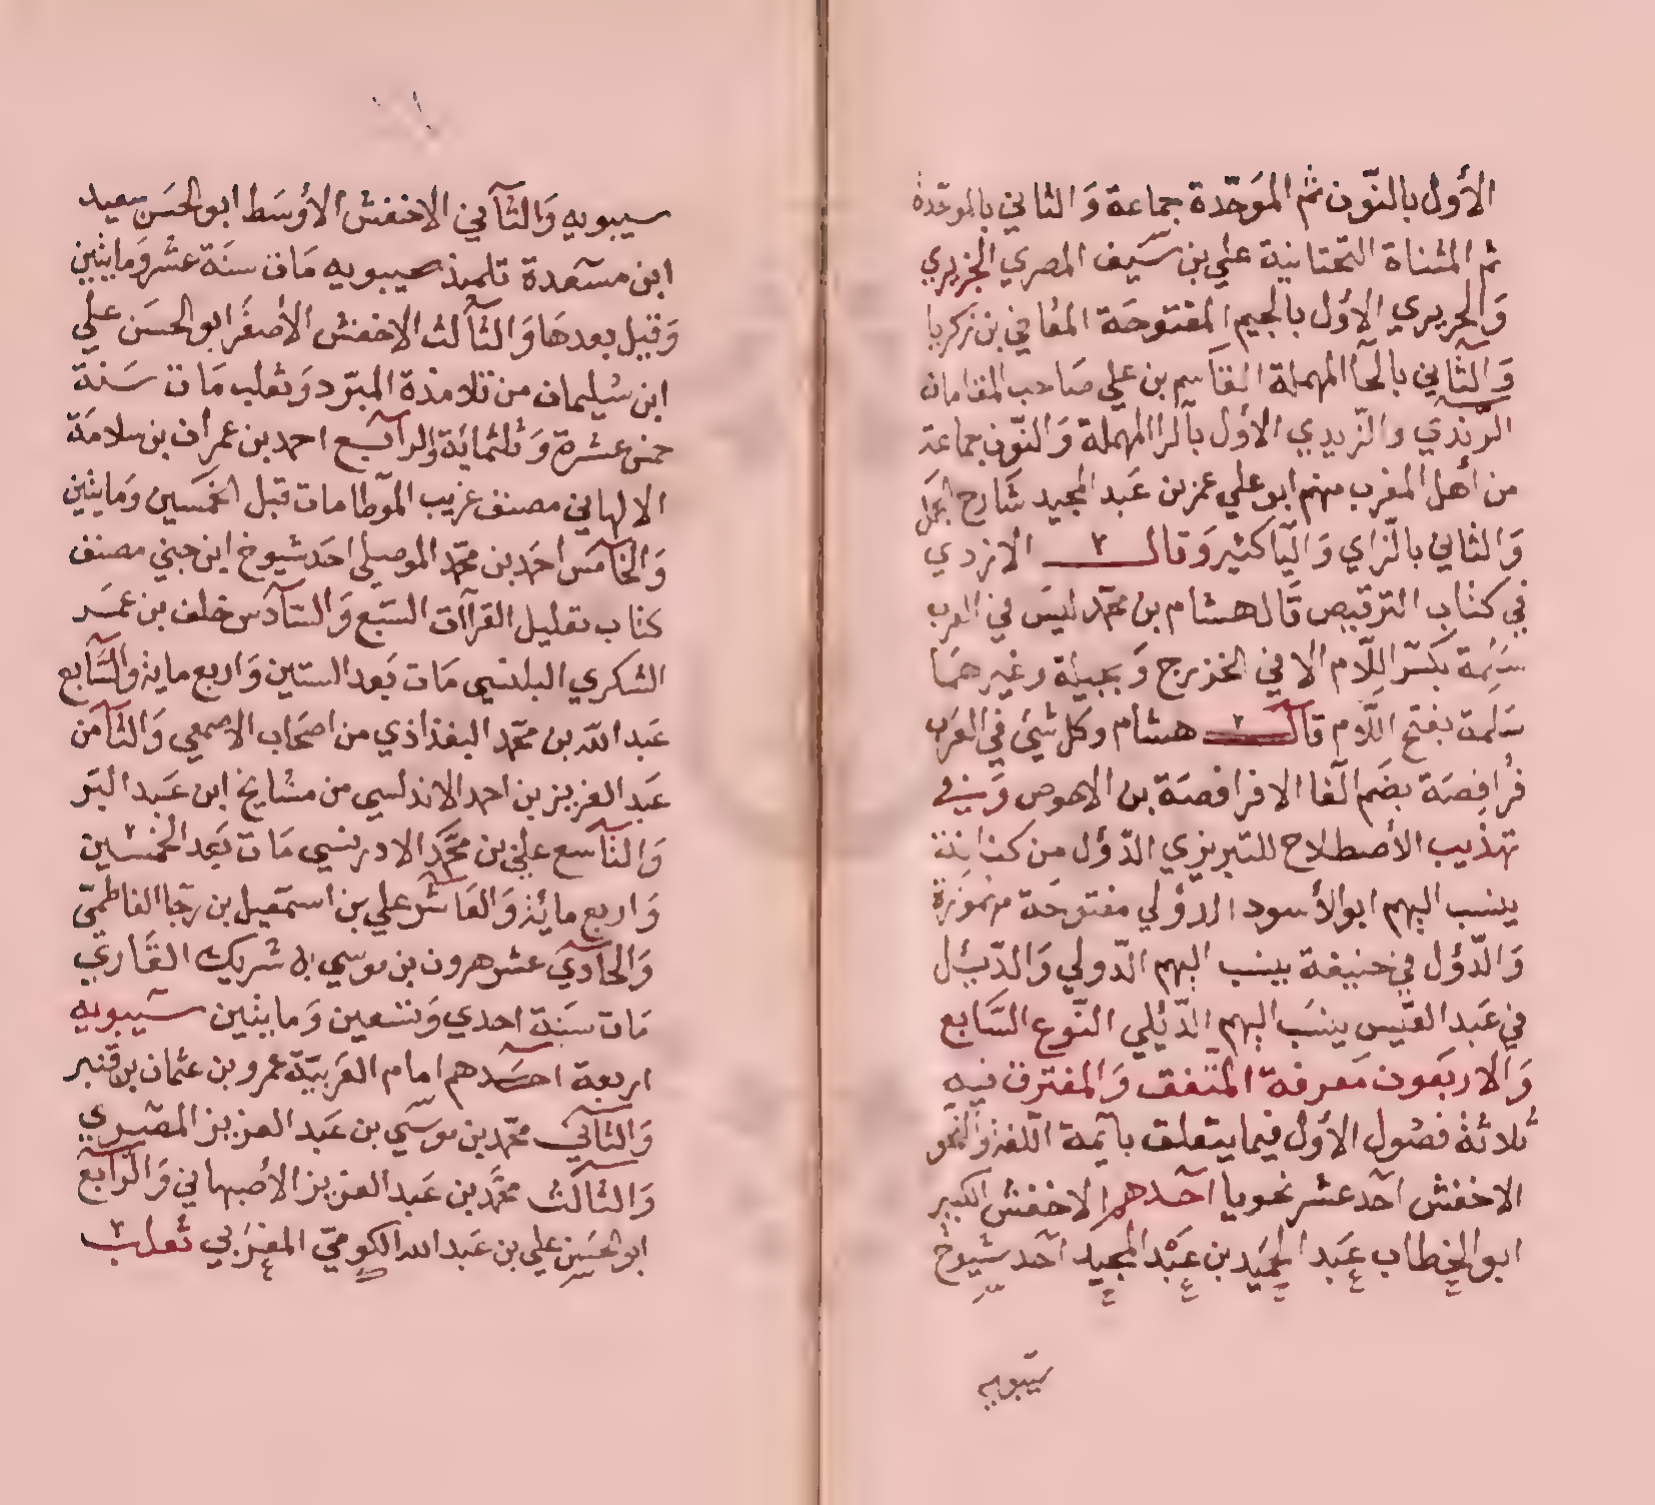 الأول بالنّون ثم الموَحّدة جماعة وَالثاني بالموحّدة
ثم المثناة التحتانية علي بن سَيف المصري الجزيري
وَالحريري الاوُل بالجيم المفتوحَة المعُافي بن زكريا
وَالثاني بالحآ المهملة القاَسِم بن علي صَاحب المقامات
الرّندَي والزّيدي الاوُل بآلرا المهملة وَالنّون جماعة
من أهل المغرب منهم ابو علي عمر بن عَبد المجيد شَارح الجمَل
وَالثاني بالزّاي وَاليّا كثير وَقال الازدي
في كتاب الترقيص قَال هشام بن محمّد ليسَ في العرب
سَلِمة بكسّر اللّام الا في الخزرج وَبجيلة وغيرهمَا
سَلمة بفتح اللّام قال هشام وكل شيَ في العرَب
فُرافِصَة بضَم الفا الا فرافصَة بن الاحوص وَفي
تهذيب الأصطلاح للتبريزي الدّؤل من كنانة
ينسب اليهم ابو الأسود الدؤلي مفتوحَة مهموزة
وَالدّؤل في حنيفة ينسب اليهم الدّولي وَالدّيُل
في عَبد القيّس ينسَب اليهم الدّيُلي النّوع السَّابع
وَالاربَعون مَعرفة المتّفق وَالمفترق فيه
ثلاثة فصُول الأوُل فيما يتعلق بآيمة اللّغة وَالنحو
الاخفش آحَد عشر نحويا آحَدهم الاخفش الكبير
ابو الخطاب عَبد الحميَد بن عَبْد المجيد آحَد شيوخ
سيبويه
سيبويه وَالثاني الاخفش الاوُسَط ابو الحسَن سعيد
ابن مسعَدة تلميذ سيبويه مَات سنَة عشر وَمايتين
وَقيل بعدهَا وَالثآلث الاخفش الأصْغَر ابو الحسَن علي
ابن سُليمان من تلامذة المبرّد وَثعلب مَات سَنة
خمس عشرة وَثلثماية وَالرآبع احمد بن عمرأن بن سلامَة
الالهاني مصنف غريب الموّطا مات قبل الخمَسين وَمايتين
وَالخامسَ احمَد بن محمّد الموصلي احَد شيوخ ابن جني مصنف
كتاب تعليل القرآات السّبع وَالسّادَس خلف بن عمَر
الشكري البلنسي مَات بَعد الستين وَاربع ماية وَالسَّابع
عَبد الله بن محمّد البغذاذي من اصحَاب الاصمعي وَالثاَمن
عَبد العزيز بن احمد الاندلسي من مشايخ ابن عَبد البرّ
وَالتآسع علي بن محَمّد الادريسي مَات بَعد الخمسين
وَاربع مائة وَالعَاشر علي بن اسمَعيل بن رَجا الفاطميّ
وَالحادَي عشر هرون بن موسي بن شريك القَاري
مَات سَنة احدي وَتسعين وَمايتين سيبويه
اربعة احَدهم امام العَربيّة عمرو بن عثمان بن قنبر
وَالثآني محمّد بن موسَي بن عَبد العزيز المصّري
وَالثآلث محمَّد بن عَبد العزيز الأصْبهاني وَالرّآبع
ابو الحسَن علي بن عَبد الله الكوميّ المغرَبي ثعلب